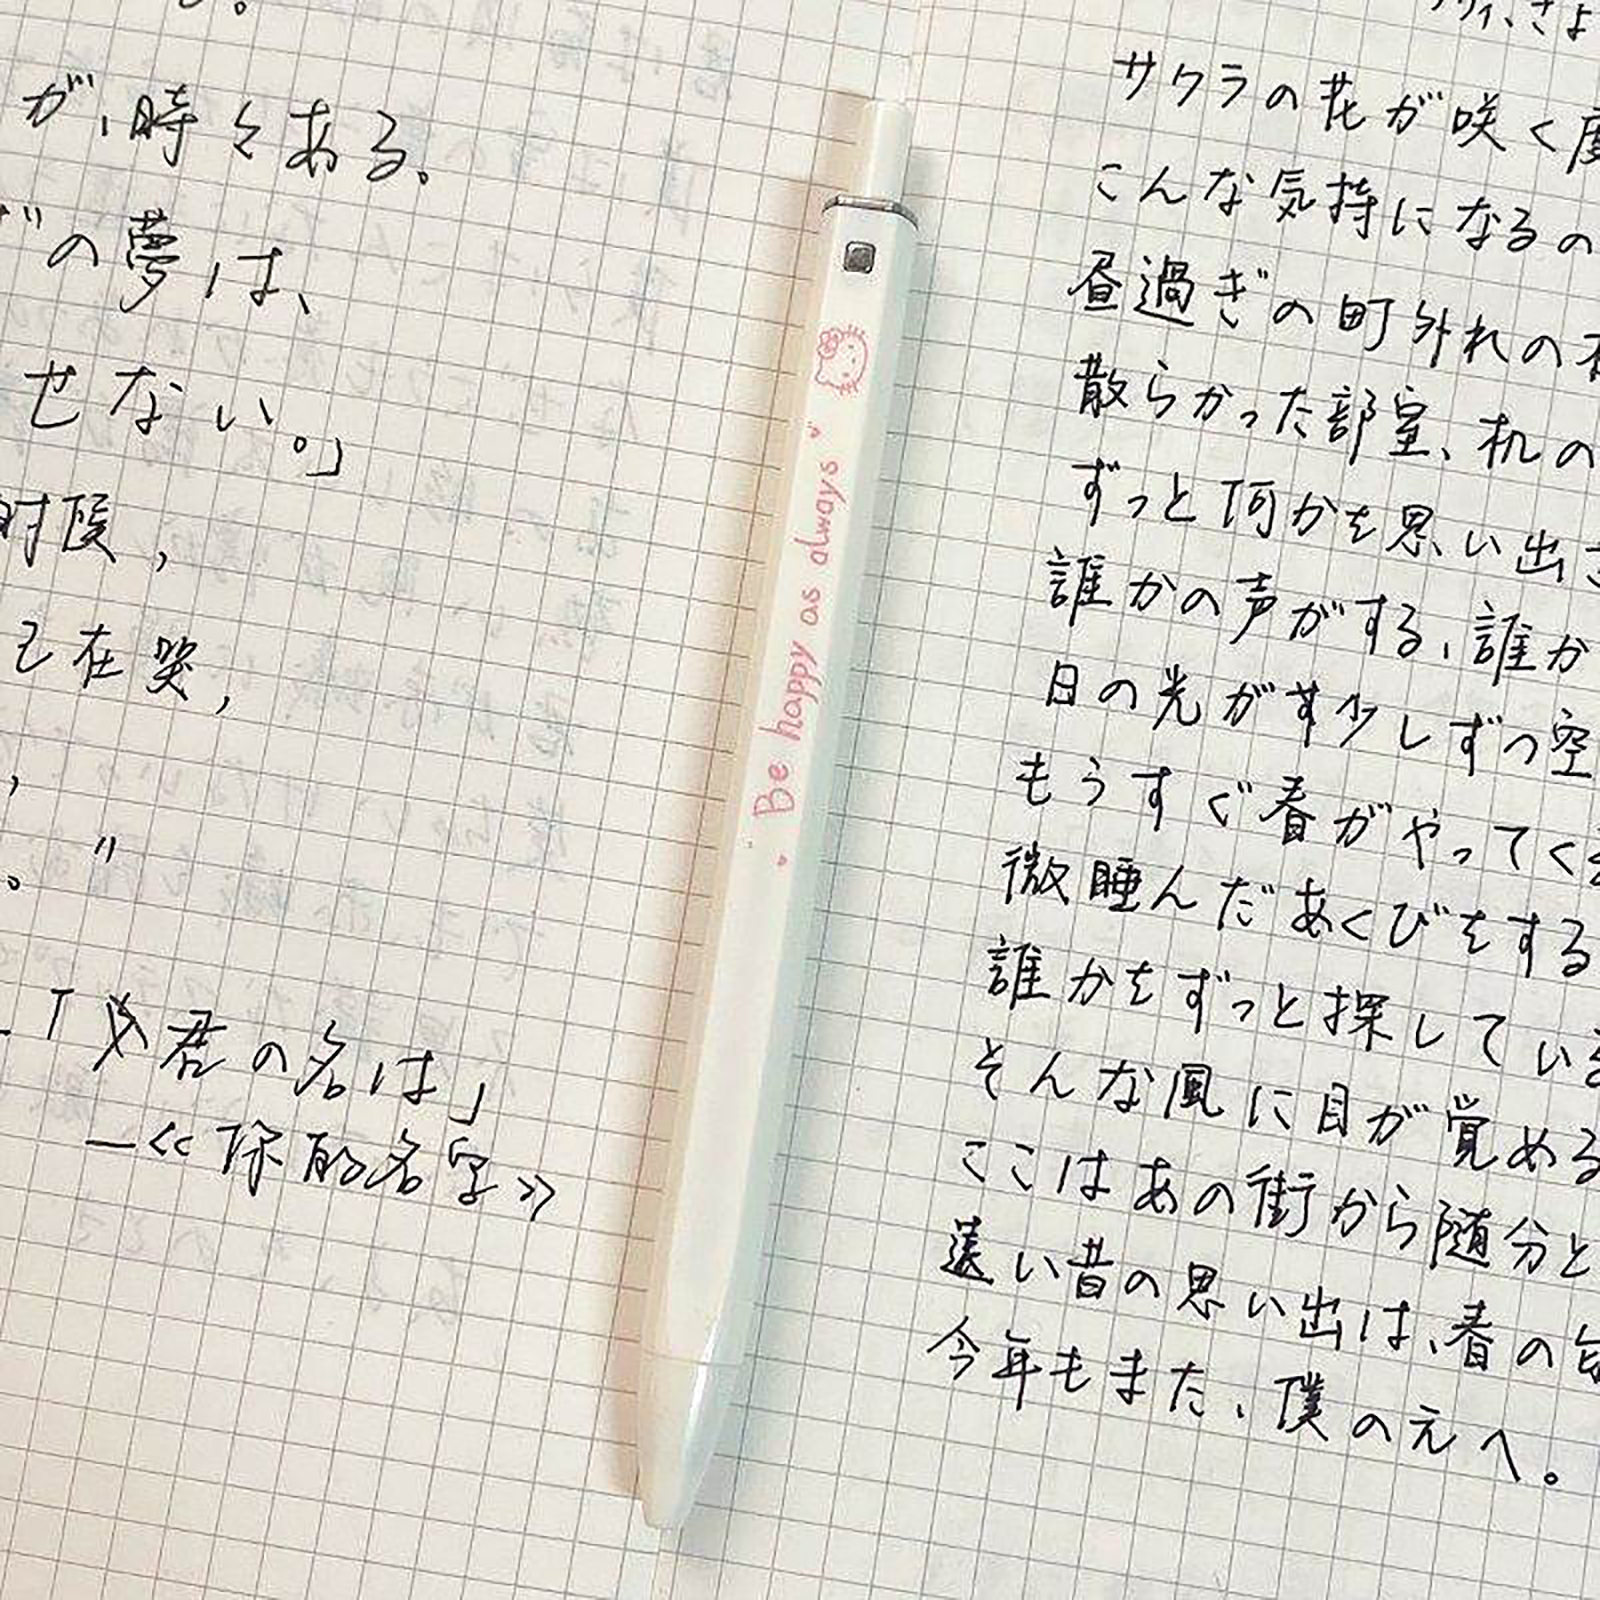 が、時々ある。
の夢は、
せない。」
时候，
己在笑，
，
。"
「君の名は」
—《你的名字》
Be happy as always
サクラの花が咲く度
こんな気持になるの
昼過ぎの町外れの
散らかった部室、机の
ずっと何かを思い出さ
誰かの声がする、誰か
日の光が少しずつ空
もうすぐ春がやってく
微睡んだあくびをする
誰かをずっと探している
そんな風に目が覚める
ここはあの街から随分と
遠い昔の思い出は、春の
今年もまた、僕の元へ。